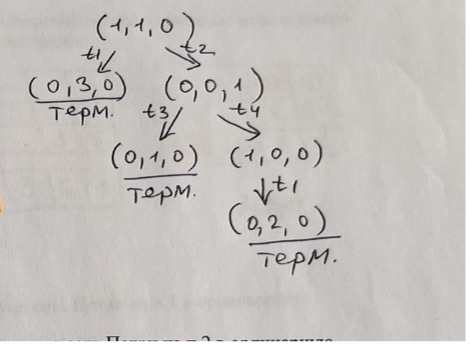 (1,1,0)
t1 t2
(0,3,0) (0,0,1)
терм. t3 t4
(0,1,0) (1,0,0)
терм. t1
(0,2,0)
терм.